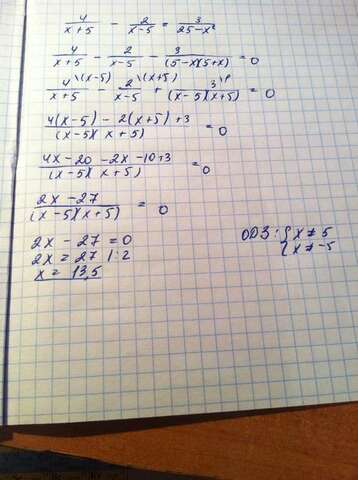 4/(x+5) - 2/(x-5) = 3/(25-x²)
4/(x+5) - 2/(x-5) - 3/((5-x)(5+x)) = 0
4\(x-5)/(x+5) - 2\(x+5)/(x-5) + 3\1/((x-5)(x+5)) = 0
(4(x-5) - 2(x+5) + 3)/((x-5)(x+5)) = 0
(4x-20-2x-10+3)/((x-5)(x+5)) = 0
(2x-27)/((x-5)(x+5)) = 0
2x - 27 = 0
2x = 27 |:2
x = 13,5
ОДЗ: { x ≠ 5
{ x ≠ -5